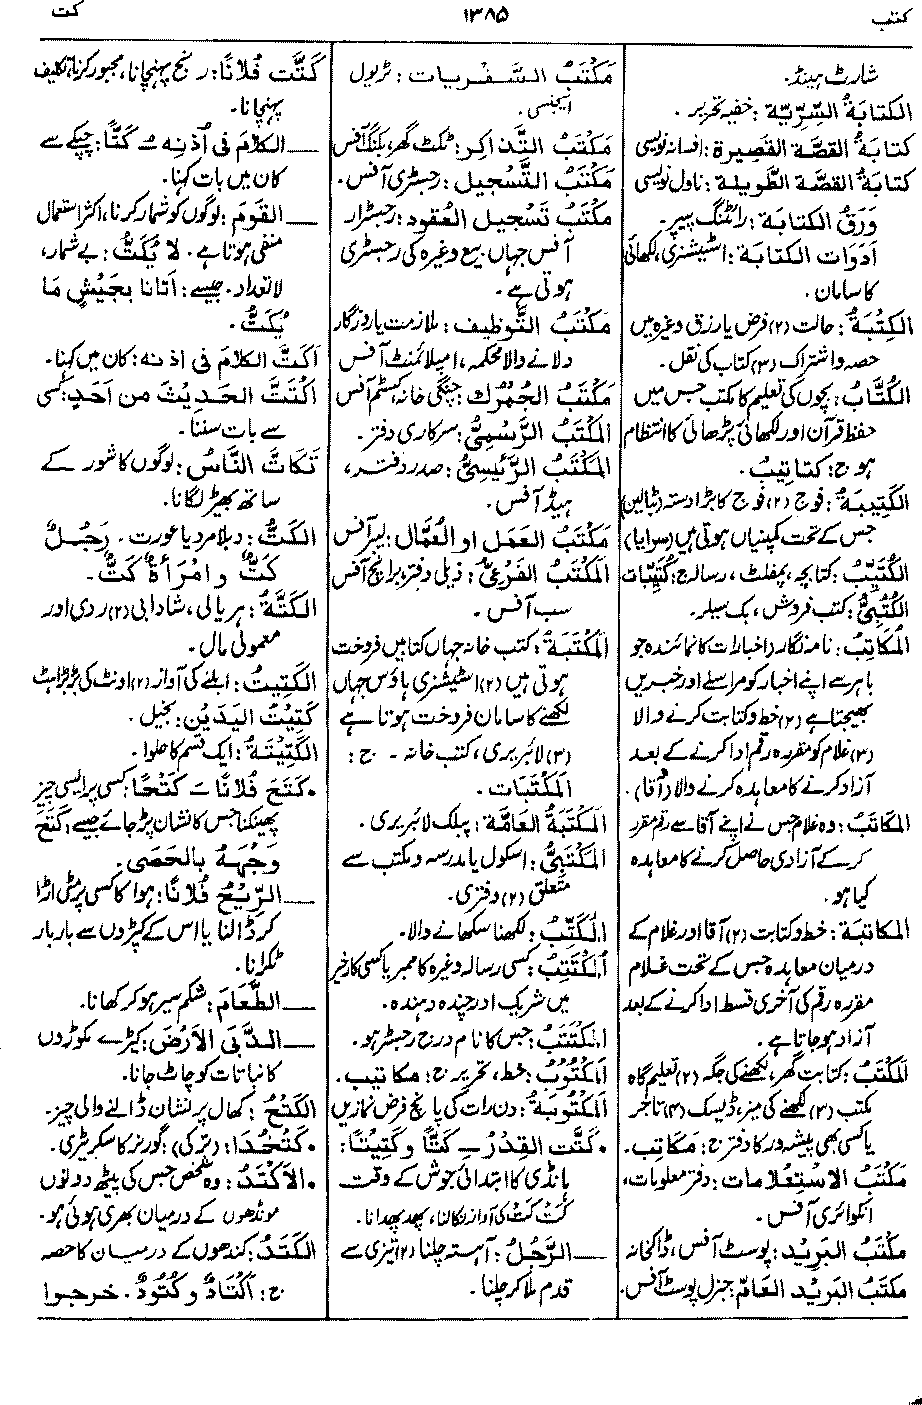 کتب
۱۳۸۵
کت
شارٹ ہینڈ۔
الکتابةُ السِّرِّیَّة : خفیہ تحریر۔
کتابةُ القصَّة القَصیرة : افسانہ نویسی
کتابةُ القصَّة الطَّویلة : ناول نویسی
وَرَقُ الکتابَة : رائٹنگ پیپر۔
اَدَوَات الکتابَة : اسٹیشنری، لکھائی
کا سامان۔
الکِتْبَةُ : حالت (۲) فرض یا رزق وغیرہ میں
حصہ و اشتراک (۳) کتاب کی نقل۔
الکُتَّاب : بچوں کی تعلیم کا مکتب جس میں
حفظ قرآن اور لکھائی پڑھائی کا انتظام
ہو ج: کتاتیبُ۔
الکَتِیبَةُ : فوج (۲) فوج کا بڑا دستہ (بٹالین)
جس کے تحت کمپنیاں ہوتی ہیں (سرایا)
الکُتَیِّبُ : کتابچہ، پمفلٹ، رسالہ ج: کُتَیِّبَات
الکُتُبِیُّ : کتب فروش، بک سیلر۔
المُکاتِبُ : نامہ نگار (اخبارات کا نمائندہ جو
باہر سے اپنے اخبار کو مراسلے اور خبریں
بھیجتا ہے (۲) خط و کتابت کرنے والا
(۳) غلام کو مقررہ رقم ادا کرنے کے بعد
آزاد کرنے کا معاہدہ کرنے والا (آقا)۔
المُکاتَبُ : وہ غلام جس نے اپنے آقا سے رقم مقرر
کرکے آزادی حاصل کرنے کا معاہدہ
کیا ہو۔
المُکاتَبَة : خط و کتابت (۲) آقا اور غلام کے
درمیان معاہدہ جس کے تحت غلام
مقررہ رقم کی آخری قسط ادا کرنے کے بعد
آزاد ہو جاتا ہے۔
المَکْتَبُ : کتابت گھر، لکھنے کی جگہ (۲) تعلیم گاہ
مکتب (۳) لکھنے کی میز، ڈیسک (۴) تاجر
یا کسی بھی پیشہ ور کا دفتر ج: مَکَاتِب۔
مَکْتَبُ الاسْتِعْلَامات : دفتر معلومات،
انکوائری آفس۔
مَکْتَبُ البَرِید : پوسٹ آفس، ڈاکخانہ
مَکْتَبُ البَرِید العَامّ : جنرل پوسٹ آفس۔
مَکْتَبُ السَّفْرِیات : ٹریول
ایجنسی۔
مَکْتَبُ التَّذَاکِر : ٹکٹ گھر، بکنگ آفس
مَکْتَبُ التَّسْجیل : رجسٹری آفس۔
مَکْتَبُ تَسْجیل العُقود : رجسٹرار
آفس جہاں بیع وغیرہ کی رجسٹری
ہوتی ہے۔
مَکْتَبُ التَّوْظیف : ملازمت یا روزگار
دلانے والا محکمہ، امپلائمنٹ آفس
مَکْتَبُ الجُمْرُك : چنگی خانہ، کسٹم آفس
المَکْتَبُ الرَّسْمِیُّ : سرکاری دفتر۔
المَکْتَبُ الرَّئیسِیُّ : صدر دفتر،
ہیڈ آفس۔
مَکْتَبُ العَمَل او العُمَّال : لیبر آفس
المَکْتَبُ الفَرْعِیُّ : ذیلی دفتر، برانچ آفس
سب آفس۔
المَکْتَبَةُ : کتب خانہ جہاں کتابیں فروخت
ہوتی ہیں (۲) اسٹیشنری ہاؤس جہاں
لکھنے کا سامان فروخت ہوتا ہے
(۳) لائبریری، کتب خانہ۔ ج :
المَکْتَبَات۔
المَکْتَبَةُ العَامَّة : پبلک لائبریری۔
المَکْتَبِیُّ : اسکول یا مدرسہ و مکتب سے
متعلق (۲) دفتری۔
المُکَتِّبُ : لکھنا سکھانے والا۔
المُکْتَتِبُ : کسی رسالہ وغیرہ کا ممبر یا کسی کارِ خیر
میں شریک اور چندہ دہندہ۔
المُکْتَتَبُ : جس کا نام درج رجسٹر ہو۔
المَکْتُوبُ : خط، تحریر ج: مکاتیب۔
المَکْتُوبَةُ : دن رات کی پانچ فرض نمازیں
• کَتَّت القِدْرُ ــِـ کَتًّا وکَتِیْتًا :
ہانڈی کا ابتدائی جوش کے وقت
کَت کَت کی آواز نکالنا، پھدپھدانا۔
ـــ الرَّجُلُ : آہستہ چلنا (۲) تیزی سے
قدم ملا کر چلنا۔
کَتَّت فُلَانًا : رنج پہنچانا، مجبور کرنا، تکلیف
پہنچانا۔
ـــ الکلامَ فی اُذنِه ــُـ کَتًّا : چپکے سے
کان میں بات کہنا۔
ـــ القومَ : لوگوں کو شمار کرنا، اکثر استعمال
منفی ہوتا ہے۔ لا یُکَتُّ : بے شمار،
لا تعداد۔ جیسے : اَتَانا بجَیْشٍ مَا
یُکَتُّ۔
اَکَتَّ الکلامَ فی اذنه : کان میں کہنا۔
اکْتَتَّ الحَدِیْثَ مِن اَحَدٍ : کسی
سے بات سننا۔
تَکَاتَّ النَّاسُ : لوگوں کا شور کے
ساتھ بھیڑ لگانا۔
الکَتُّ : دبلا مرد یا عورت۔ رَجُلٌ
کَتٌّ وامْرَأَةٌ کَتٌّ۔
الکَتَّةُ : ہریالی، شادابی (۲) ردی اور
معمولی مال۔
الکَتِیتُ : ابلنے کی آواز (۲) اونٹ کی بڑبڑاہٹ
کَتِیْتُ الیَدَیْنِ : بخیل۔
الکَتِیْتَةُ : ایک قسم کا حلوا۔
• کَتَحَ فُلَانًا ــَـ کَتْحًا : کسی پر ایسی چیز
پھینکنا جس کا نشان پڑ جائے جیسے : کَتَحَ
وَجْهَهُ بالحَصَی۔
ـــ الرِّیْحُ فُلَانًا : ہوا کا کسی پر مٹی اڑا
کر ڈالنا یا اس کے کپڑوں سے بار بار
ٹکرانا۔
ـــ الطَّعَامَ : شکم سیر ہو کر کھانا۔
ـــ الدَّبَی الاَرْضَ : کیڑے مکوڑوں
کا نباتات کو چاٹ جانا۔
الکَتْحُ : کھال پر نشان ڈالنے والی چیز۔
• کَتْخُدَا : (ترکی) : گورنر کا سکریٹری۔
• الاَکْتَدُ : وہ شخص جس کی پیٹھ دونوں
مونڈھوں کے درمیان بھری ہوئی ہو۔
الکَتَدُ : کندھوں کے درمیان کا حصہ
ج : اَکْتَادٌ وکُتُودٌ۔ خرجوا